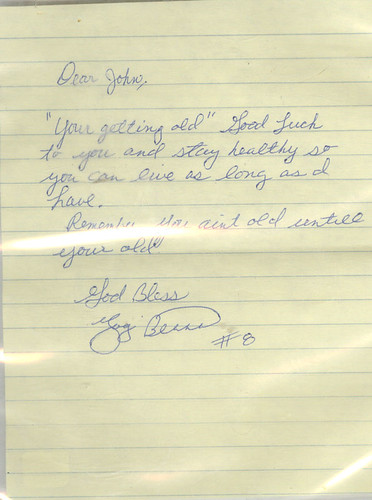 Dear John,
"Your getting old" Good Luck
to you and stay healthy so
you can live as long as I
have.
Remember you aint old untill
your old
God Bless
Yogi Berra
#8